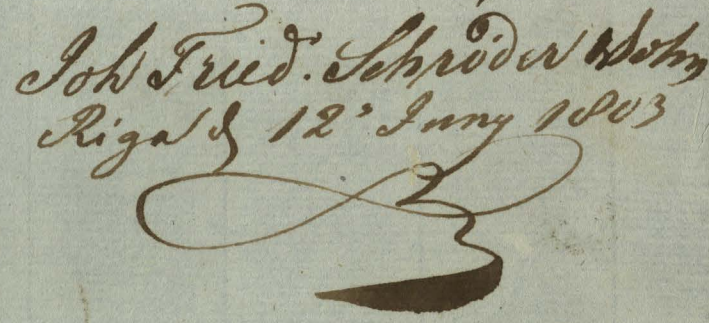 Joh Fried. Schröder & Sohn
Riga d 12 Juny 1803